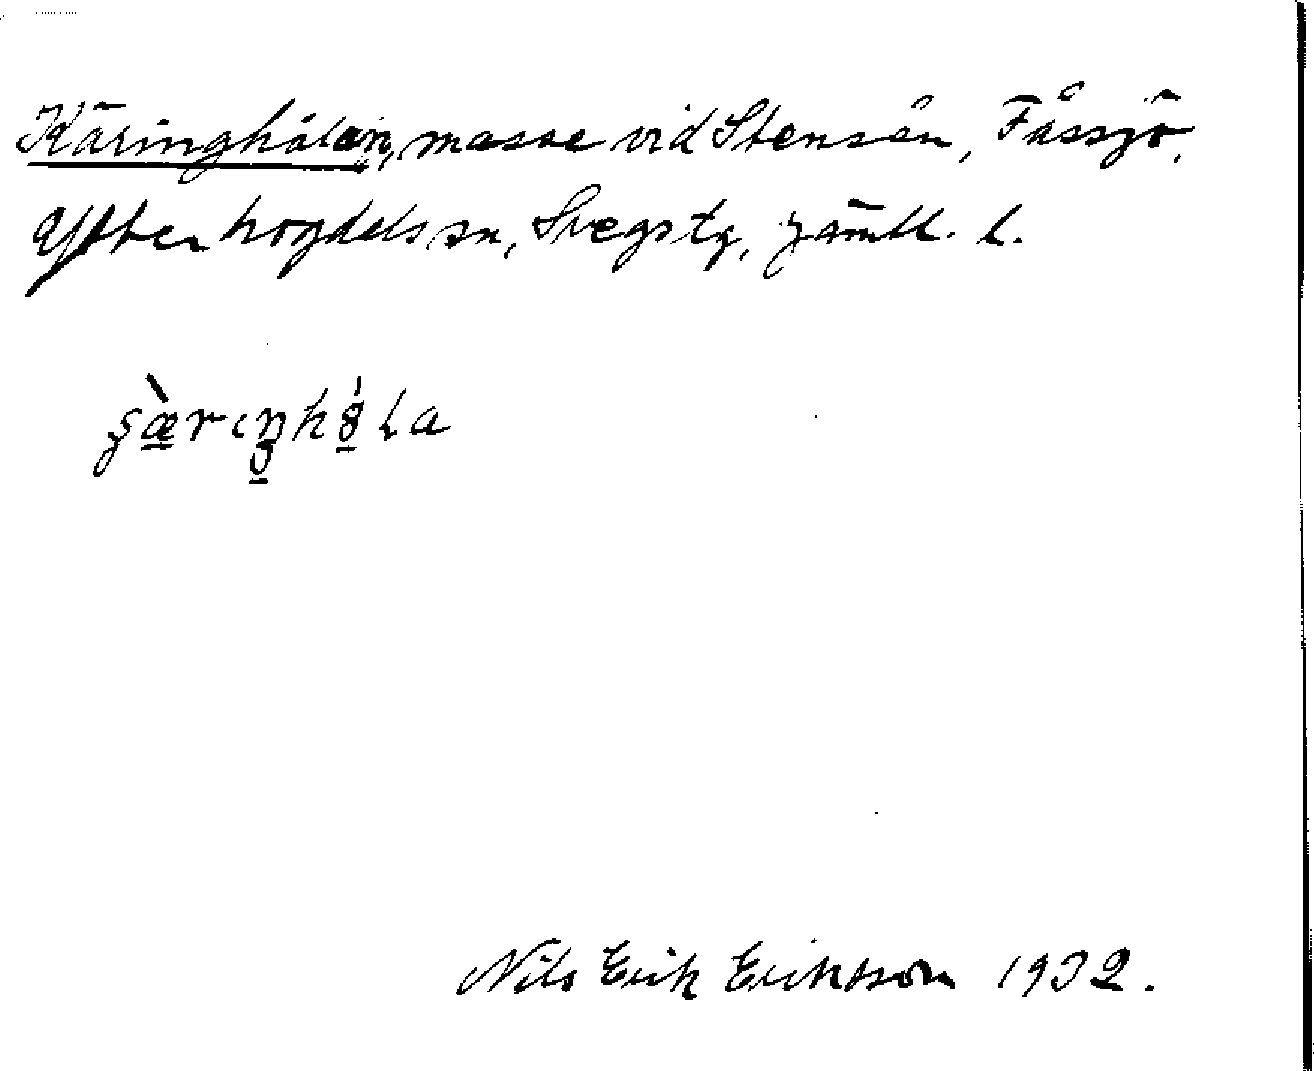 Käringhålan, mosse vid Stensån, Fåssjö,
Ytterhogdals sn, Svegs tg, Jämtl. l.
Nils Erik Erikson 1932.